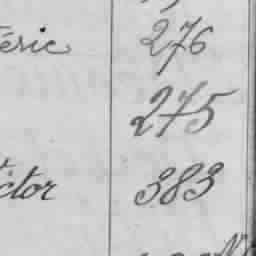 éric 276
275
ctor 383